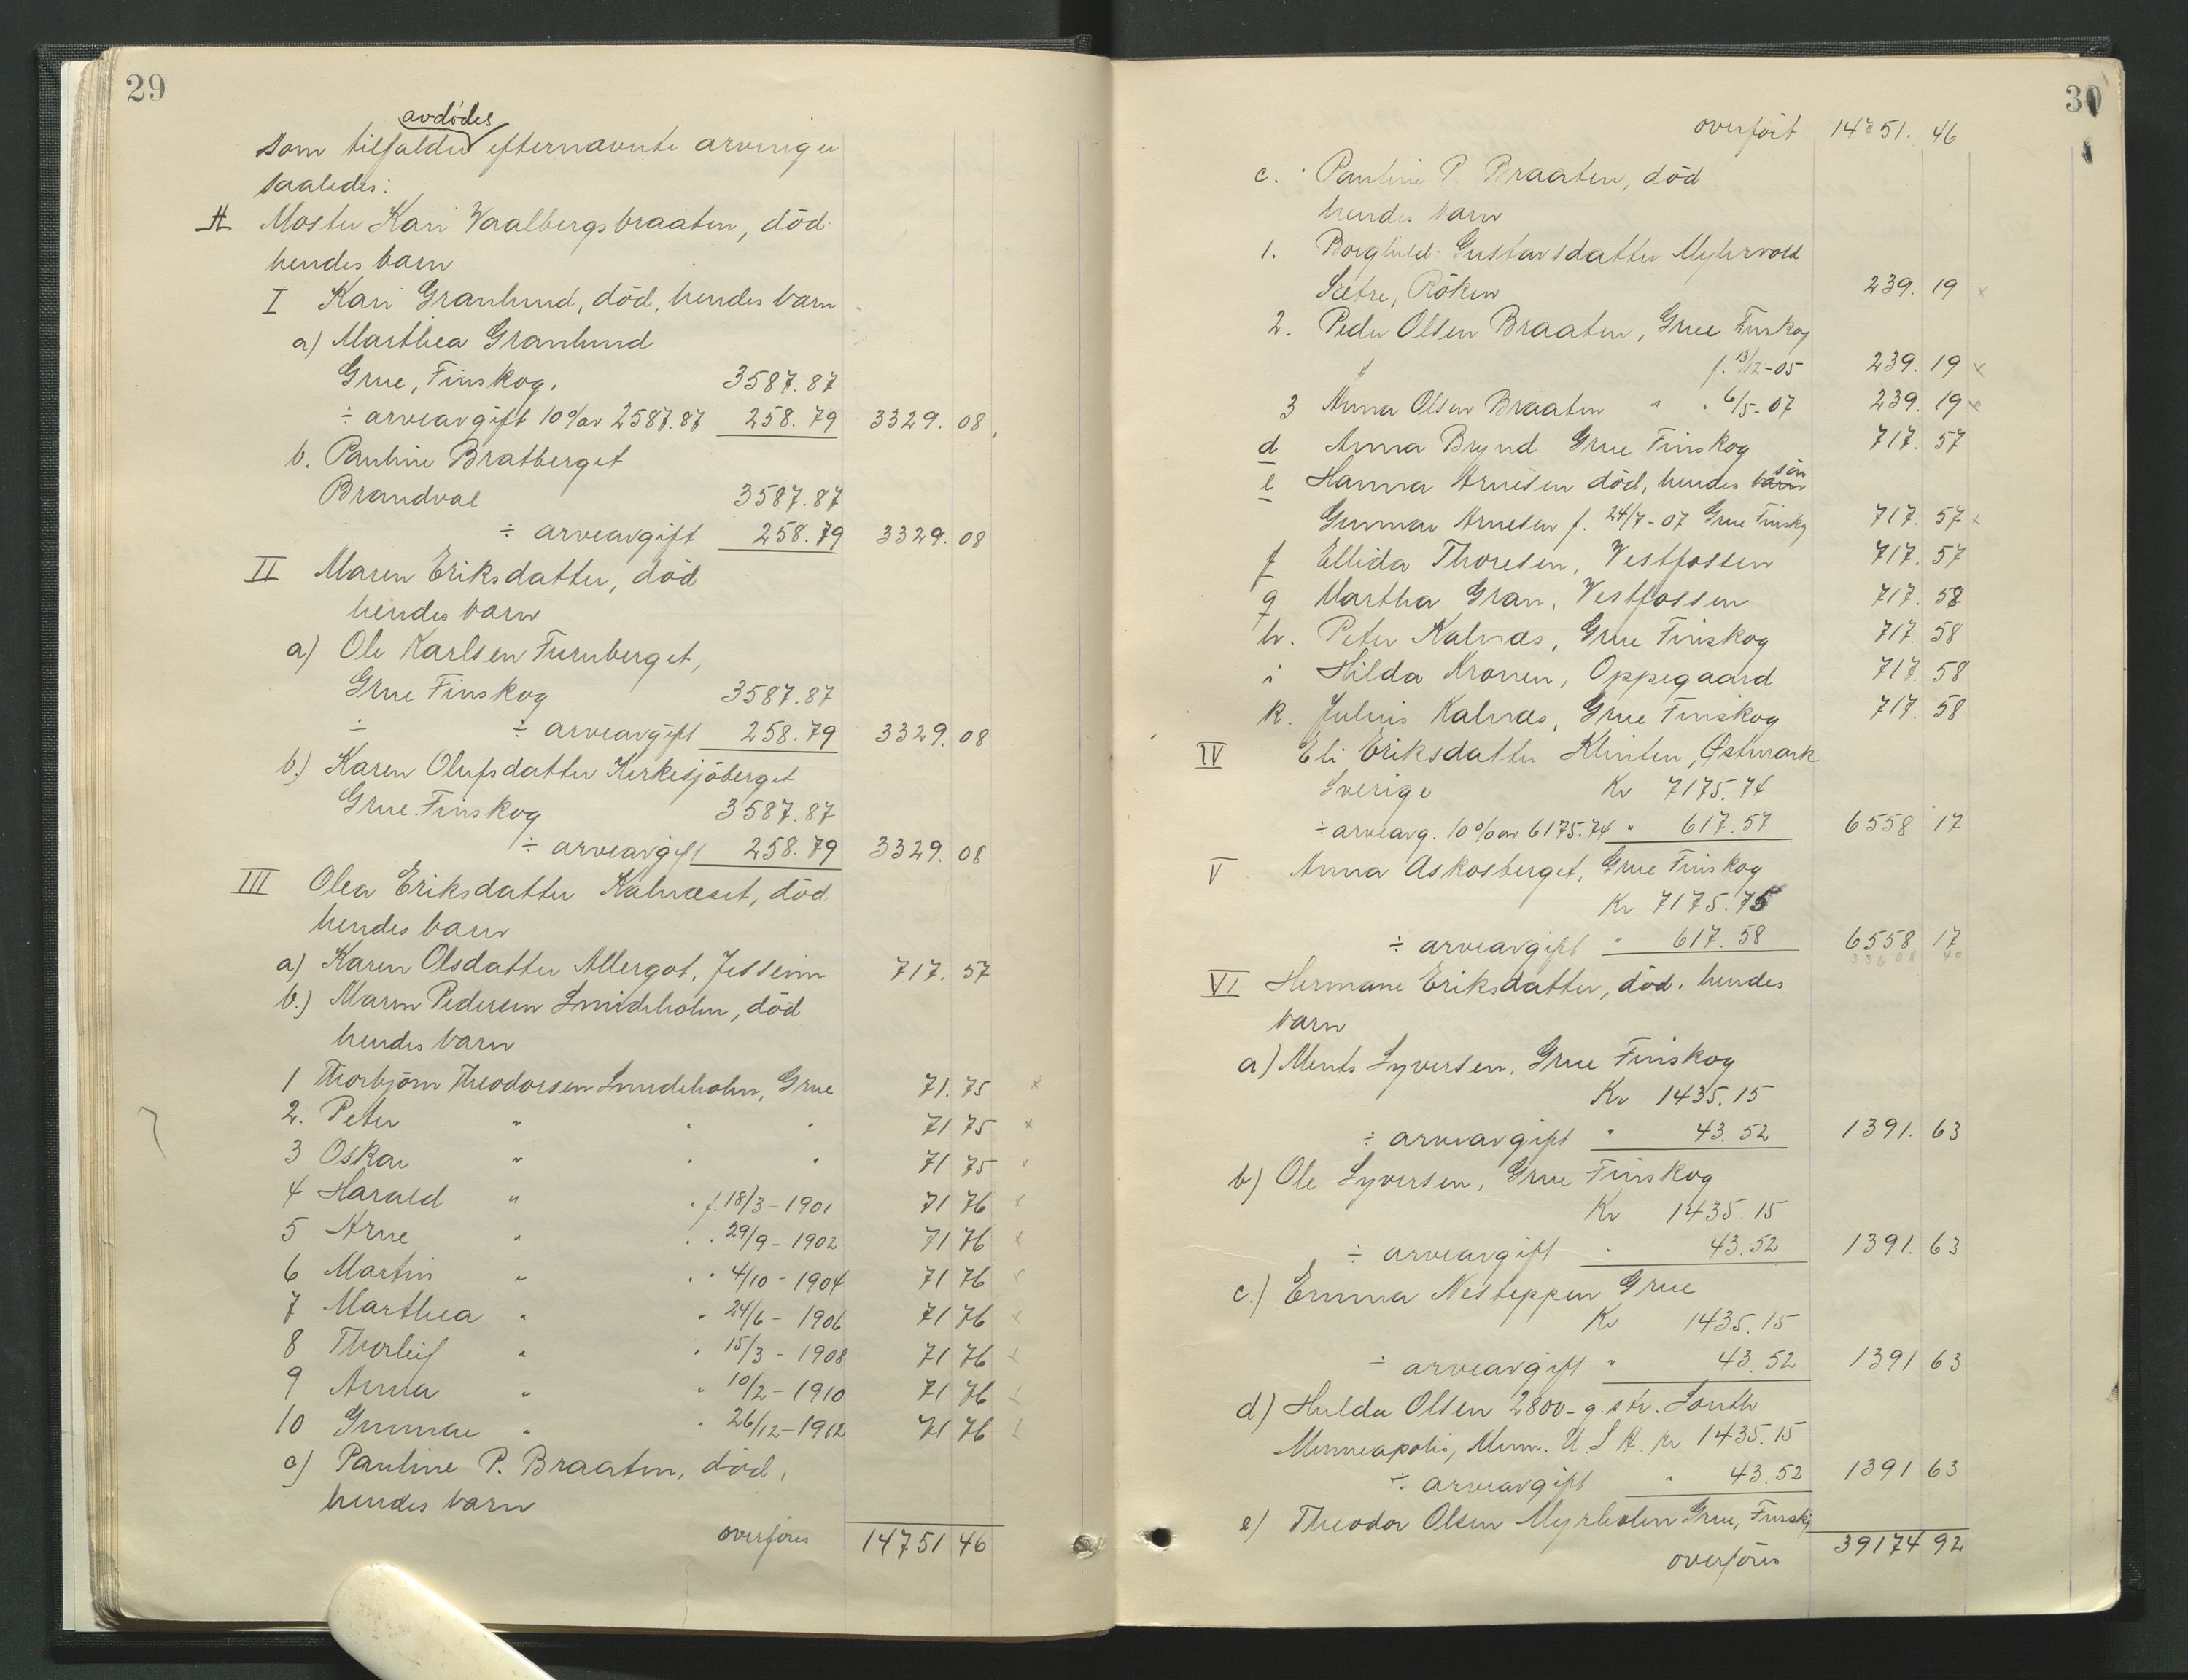 29
avdødes
som tilfalder efternævnte arvinger
saaledes:
A Moster Kari Vaalbergsbraaten, død
hendes barn
I Kari Granlund, død, hendes barn
a) Marthea Granlund
Grue, Finskog. 3587.87
÷ arveavgift 10% av 2587.87 258.79 3329.08
b. Pauline Bratberget
Brandval 3587.87
÷ arveavgift 258.79 3329.08
II Maren Eriksdatter, død
hendes barn
a) Ole Karlsen Furuberget,
Grue Finskog 3587.87
÷ ÷ arveavgift 258.79 3329.08
b.) Karen Olufsdatter Kirkesjøberget
Grue Finskog 3587.87
÷ arveavgift 258.79 3329.08
III Olea Eriksdatter Kalneset, død
hendes barn
a) Karen Olsdatter Allergot, Jessheim 717.57
b.) Maren Pedersen Smideholm, død
hendes barn
1 Thorbjørn Theodorsen Smideholm, Grue 71.75 x
2. Peter " " " 71 75 x
3 Oskar " " " 71 75 x
4 Harald " " f. 18/3-1901 71 76 x
5 Arne " " " 29/9-1902 71 76 x
6 Martin " " " 4/10-1904 71 76 x
7 Marthea " " 24/6-1906 71 76 x
8 Thorleif " " 15/3-1908 71 76 x
9 Anna " " 10/2-1910 71 76 x
10 Gunnar " " 26/12-1912 71 76 x
c) Pauline P. Braaten, død,
hendes barn
overføres 14751 46
30
overført 14751.46
c. Pauline P. Braaten, død
hendes barn
1. Borghild Gustavsdatter Myhrvold
Sætre, Røken 239.19 x
2. Peder Olsen Braaten, Grue Finskog
f. 13/12-05 239.19 x
3 Anna Olsen Braaten " " 6/5-07 239.19 x
d Anna Brynd Grue Finskog 717.57
e Hanna Arnesen død, hendes barn søn
Gunnar Arnesen f. 24/7-07 Grue Finskg 717.57 x
f Ellida Thoresen, Vestfossen 717.57
g Martha Gran, Vestfossen 717.58
h. Peter Kalnæs, Grue Finskog 717.58
i Hilda Kronen, Oppegaard 717.58
k. Julius Kalnæs, Grue Finskog 717.58
IV Eli Eriksdatter Klinten, Østmark
Sverige Kr 7175.74
÷ arveavg. 10% av 6175.74 " 617.57 6558 17
V Anna Askosberget, Grue Finskog
Kr 7175.75
÷ arveavgift " 617.58 6558 17
33608 40
VI Hermane Eriksdatter, død. hendes
barn
a) Ments Syversen, Grue Finskog
Kr 1435.15
÷ arveavgift " 43.52 1391.63
b) Ole Syversen, Grue Finskog
Kr 1435.15
÷ arveavgift " 43.52 1391.63
c.) Emma Nesteppen Grue
Kr 1435.15
÷ arveavgift " 43.52 1391 63
d) Hulda Olsen 2800-9. str. South
Minneapolis, Minn. U.S.A. Kr 1435.15
÷ arveavgift " 43.52 1391 63
e) Theodor Olsen Myrholen Grue, Finskg
overføres 39174 92